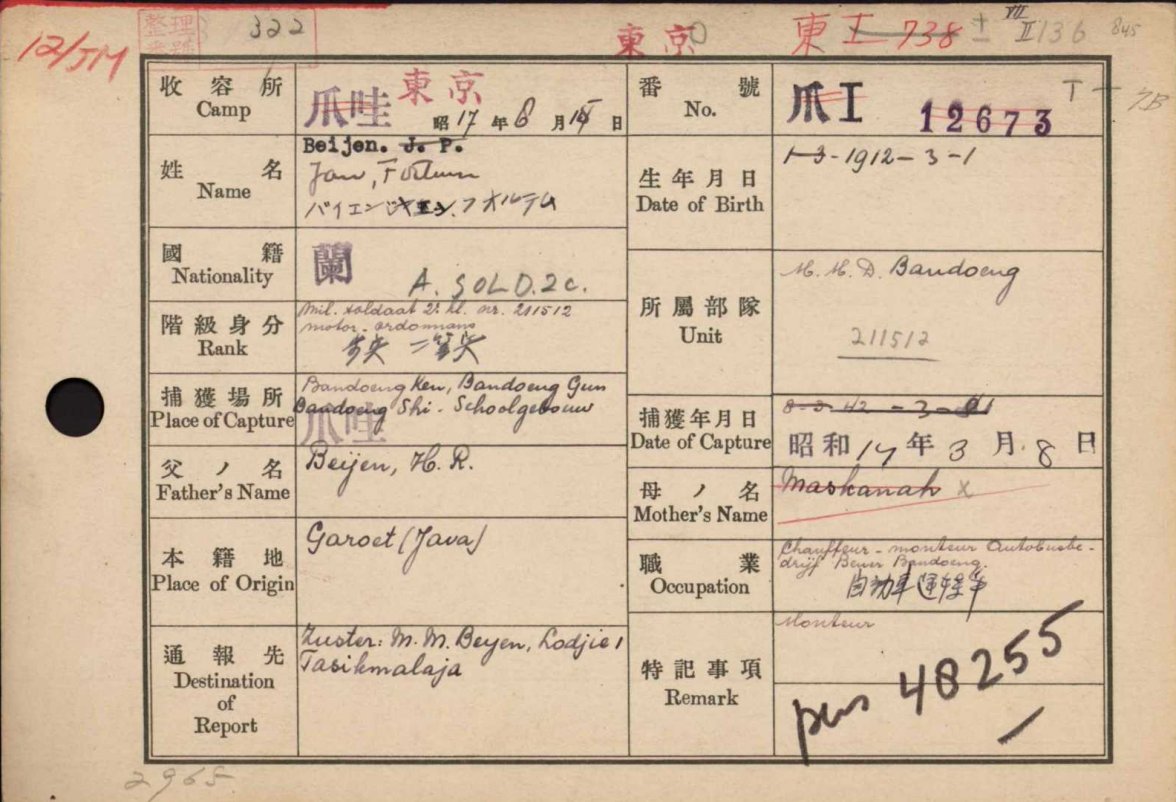 12/JM
整理
322
東京
東 I 738 ± VII II 136 845
收容所
Camp
爪哇 東京
昭 17 年 8 月 15 日
番號
No.
爪 I 12673
T
姓名
Name
Beijen. J. P.
Jan, Fortuun
バイエン ヤン.フオルテム
生年月日
Date of Birth
1-3-1912-3-1
國籍
Nationality
蘭
A. SOLD. 2c.
所屬部隊
Unit
M. M. D. Bandoeng
211512
階級身分
Rank
Mil. soldaat 2e kl. nr. 211512
motor-ordonnans
捕獲場所
Place of Capture
Bandoeng Ken, Bandoeng Gun
Bandoeng Shi - Schoolgebouw
爪哇
捕獲年月日
Date of Capture
昭和 17 年 3 月 8 日
父ノ名
Father's Name
Beijen, H. R.
母ノ名
Mother's Name
Maskanah x
本籍地
Place of Origin
Garoet (Java)
職業
Occupation
Chauffeur - monteur Autobusbe-
drijf Bandoeng.
自動車運轉手
通報先
Destination
of
Report
Zuster: M. M. Beyen, Lodjie 1
Tasikmalaja
特記事項
Remark
Monteur
pens 48255
2965